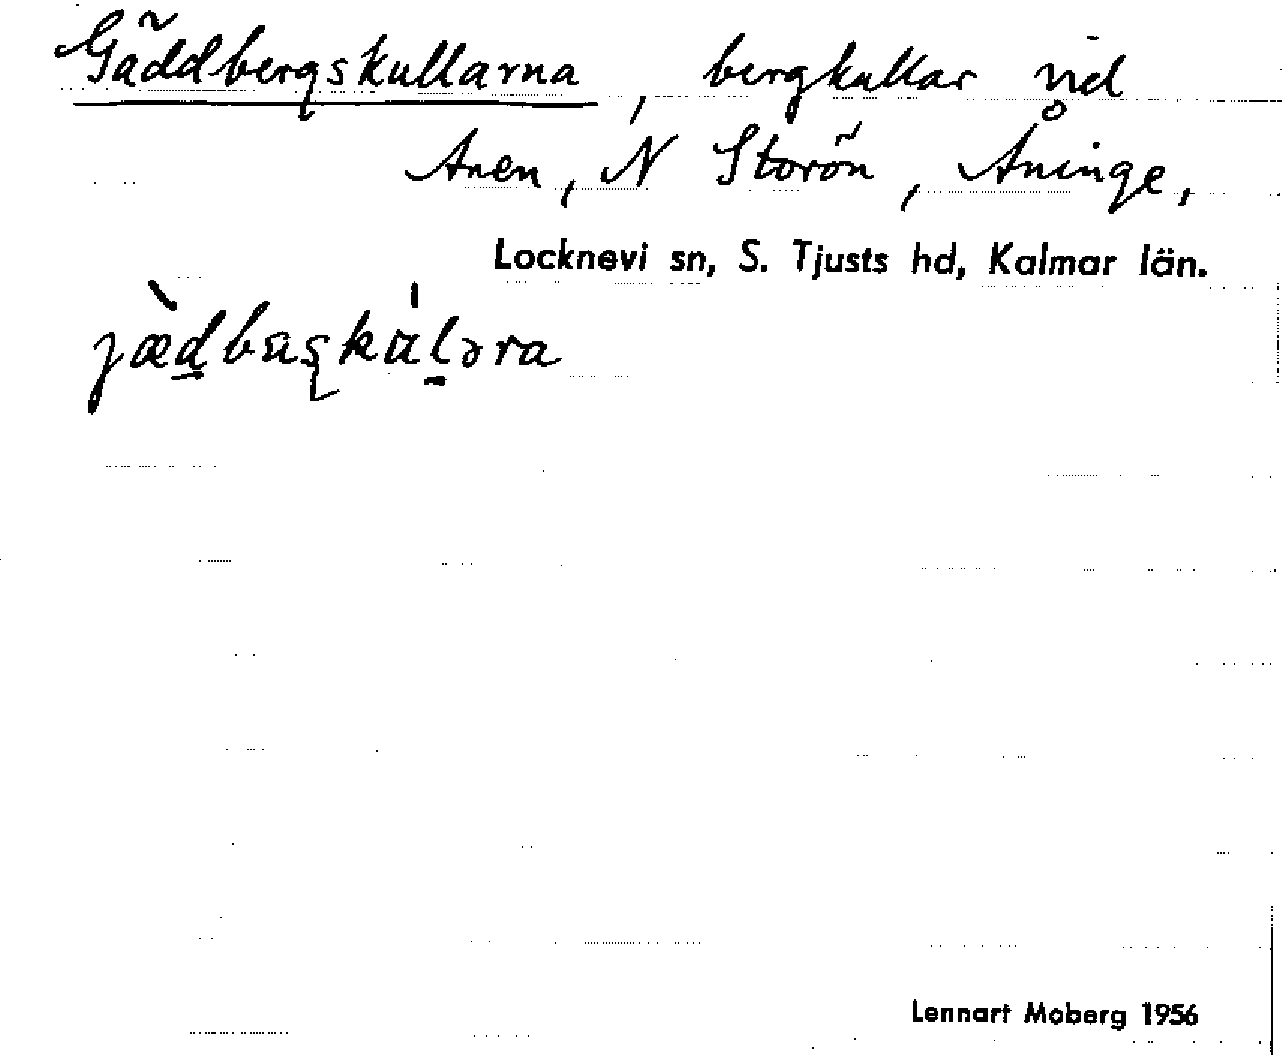 Gäddbergskullarna, bergkullar vid
Anen, N Storön, Åninge,
Locknevi sn, S. Tjusts hd, Kalmar län.
Lennart Moberg 1956